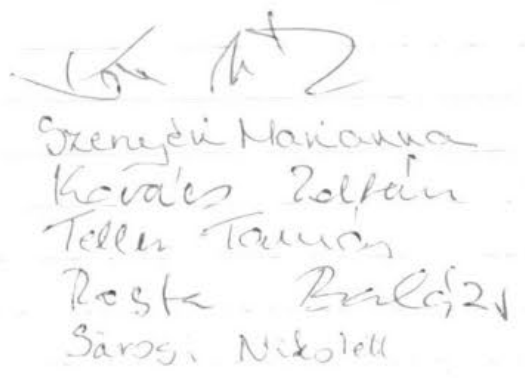 Szenyéri Marianna
Kovács Zoltán
Teller Tamás
Rosta Balázs
Sárosi Nikolett